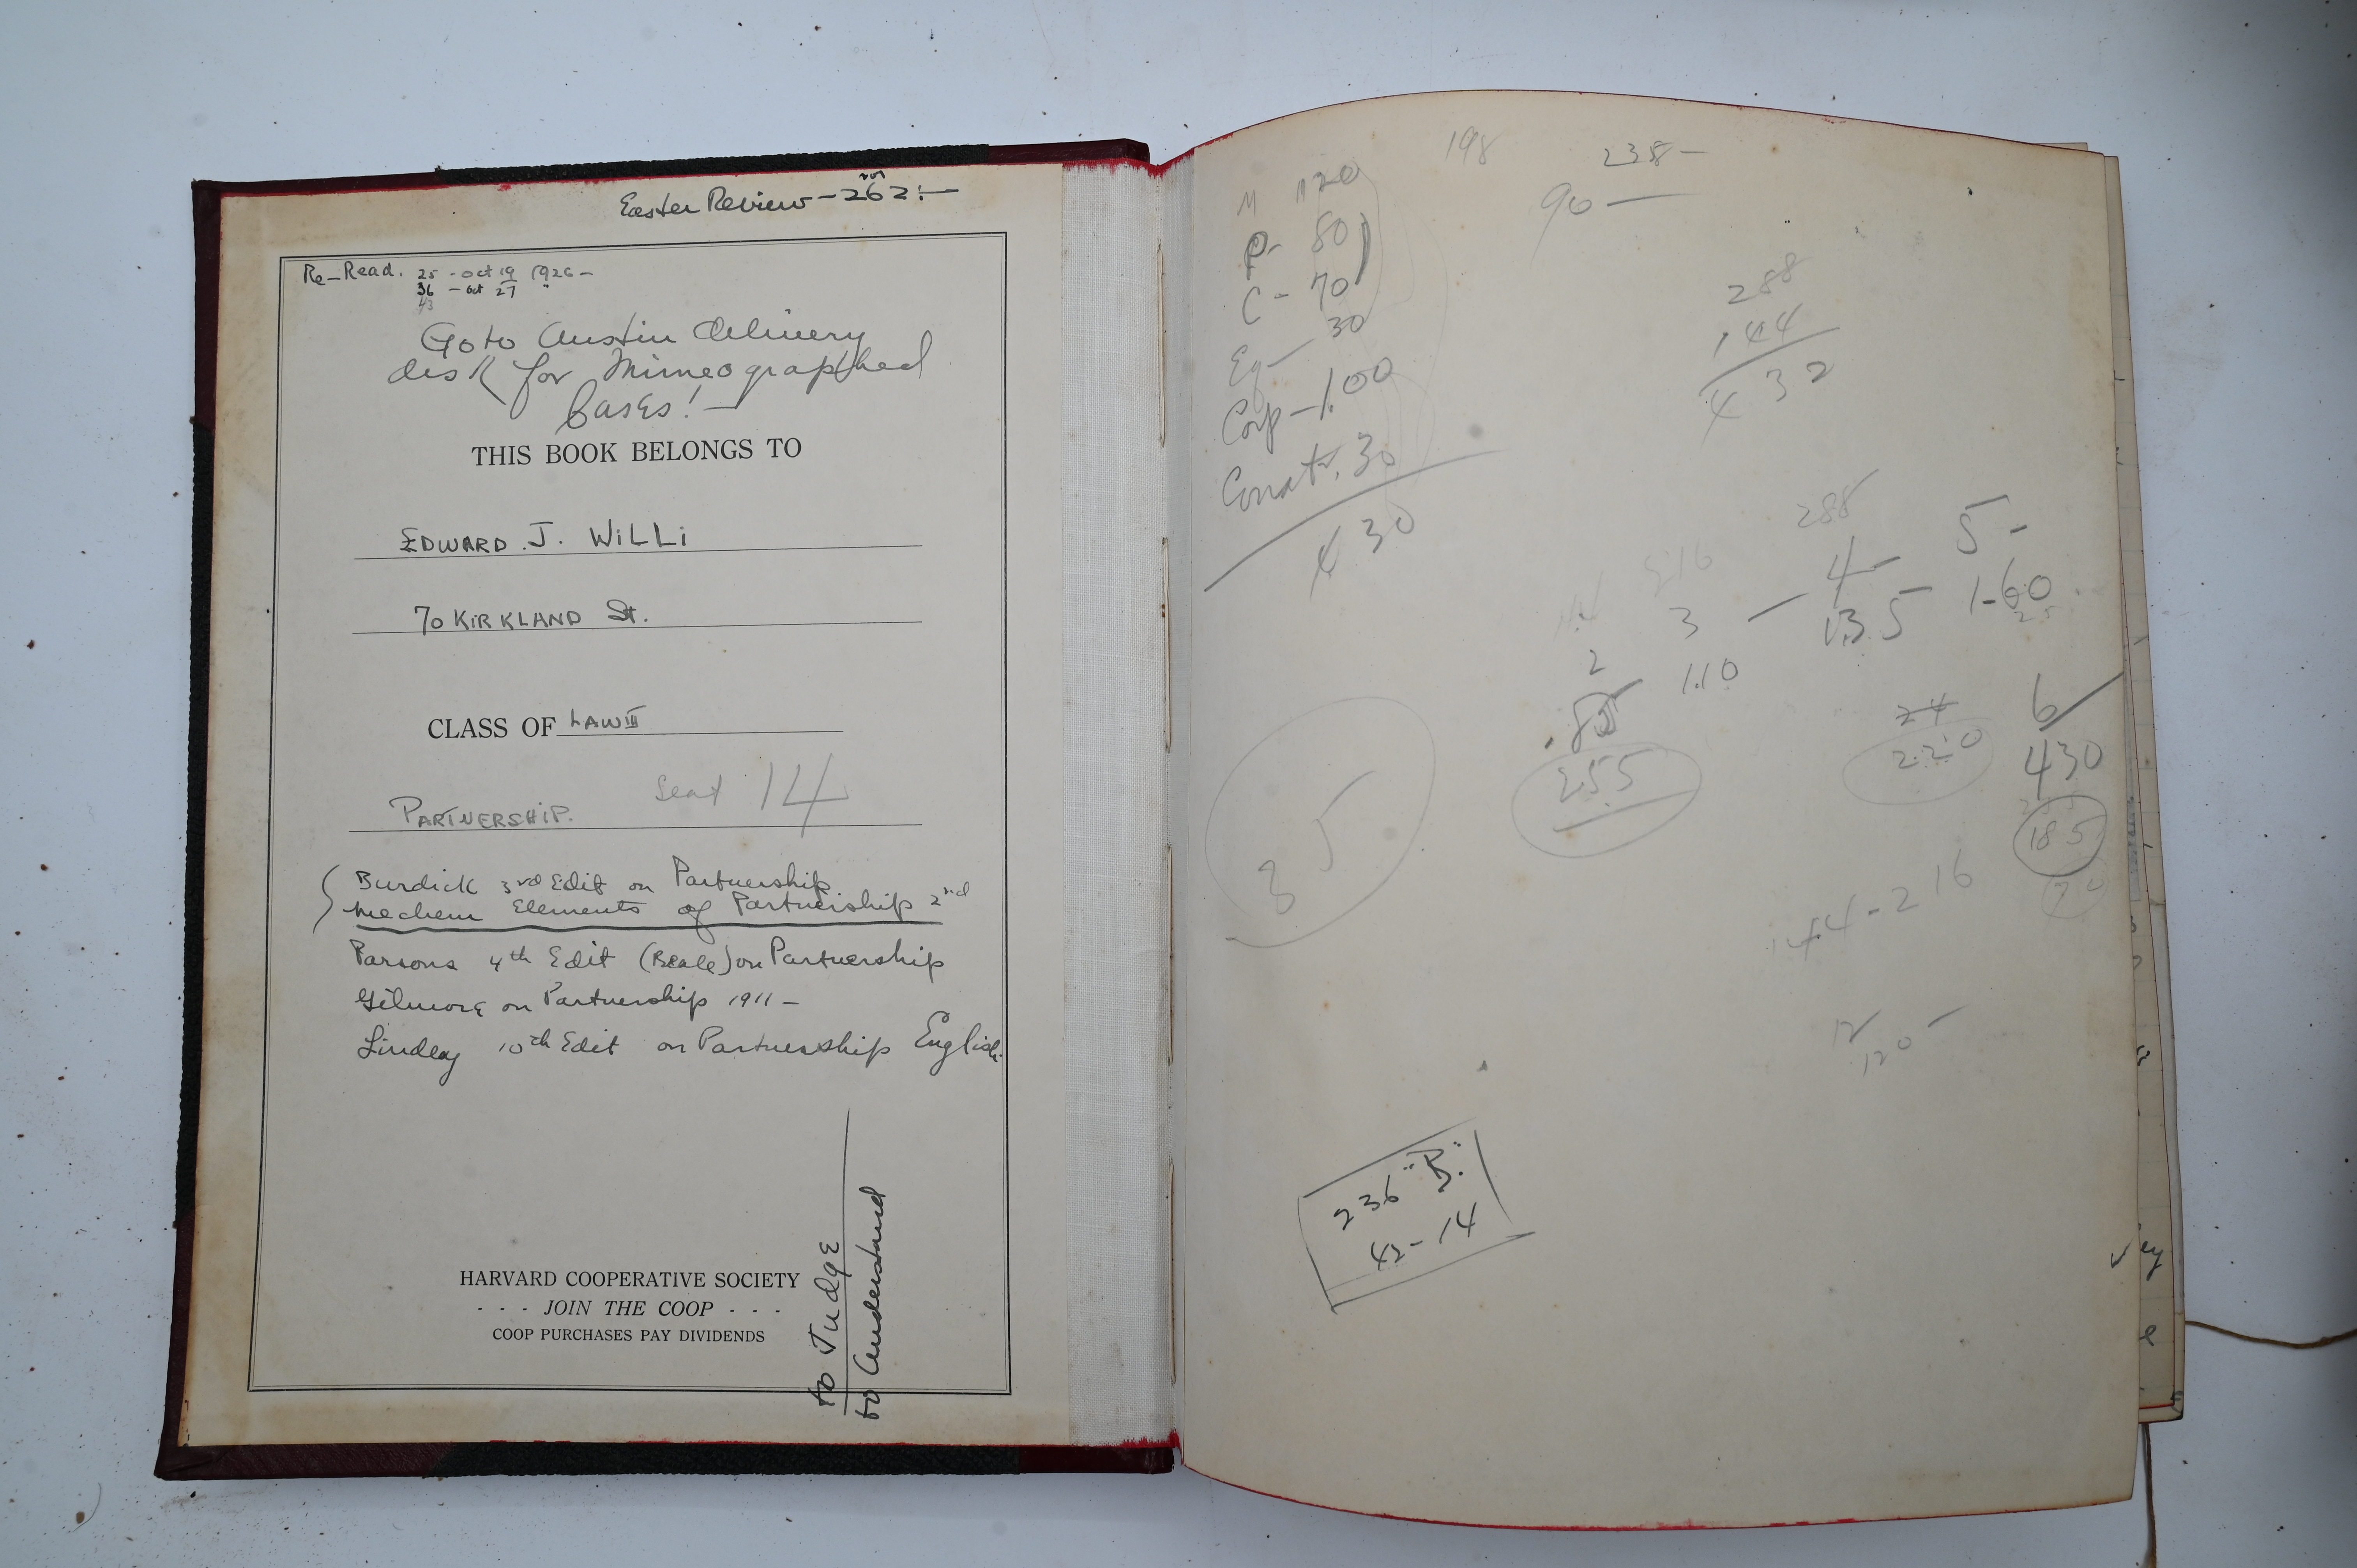 Easter Review - 262:-
Re-Read. 25 - Oct 19 1926 -
36 - Oct 27 "
43
Go to Austin delivery
desk for Mimeographed
Cases! -
THIS BOOK BELONGS TO
EDWARD J. WILLI
70 KIRKLAND St.
CLASS OF LAW III
Seat 14
PARTNERSHIP.
Burdick 3rd Edit on Partnership
Mechem Elements of Partnership 2nd
Parsons 4th Edit (Beale) on Partnership
Gilmore on Partnership 1911 -
Lindley 10th Edit on Partnership English
to Judge
to Understand
HARVARD COOPERATIVE SOCIETY
- - - JOIN THE COOP - - -
COOP PURCHASES PAY DIVIDENDS
198 238 -
90 -
M 120
P - 80
C - 70
Eq - 30
Corp - 1.00
Const. 30
430
288
144
432
288
216
5 -
4 -
3 -
1.60
1.35
25
1.10
2
.85
255
24
220
6
430
185
35
144 - 216
12
120 -
236 "B"
42 - 14
ey
e